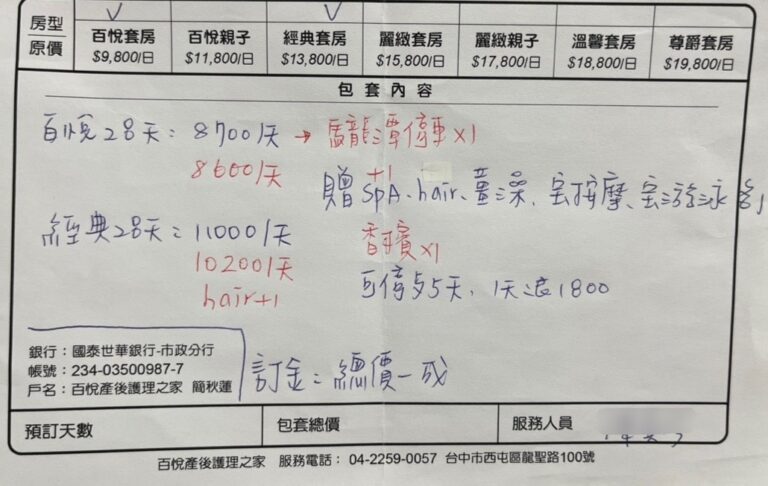 房型 百悅套房 百悅親子 經典套房 麗緻套房 麗緻親子 溫馨套房 尊爵套房
原價 $9,800/日 $11,800/日 $13,800/日 $15,800/日 $17,800/日 $18,800/日 $19,800/日
包套內容
百悅28天: 8700/天 → 龍潭停車x1
8600/天
+1
贈 SPA、hair、薑澡、宝按摩、宝游泳 各1
經典28天: 11000/天
香檳x1
10200/天
可停5天、1天退1800
hair+1
銀行：國泰世華銀行-市政分行
帳號：234-03500987-7
戶名：百悅產後護理之家 簡秋蓮
訂金: 總價一成
預訂天數 包套總價 服務人員
百悅產後護理之家 服務電話： 04-2259-0057 台中市西屯區龍聖路100號